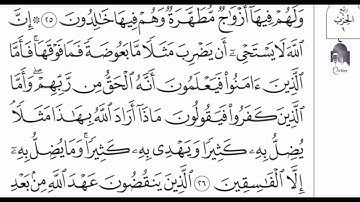 وَلَهُمْ فِيهَآ أَزْوَٰجٌ مُّطَهَّرَةٌ وَهُمْ فِيهَا خَٰلِدُونَ ٢٥ ۞ إِنَّ
ٱللَّهَ لَا يَسْتَحْىِۦٓ أَن يَضْرِبَ مَثَلًا مَّا بَعُوضَةً فَمَا فَوْقَهَا فَأَمَّا
ٱلَّذِينَ ءَامَنُوا۟ فَيَعْلَمُونَ أَنَّهُ ٱلْحَقُّ مِن رَّبِّهِمْ وَأَمَّا
ٱلَّذِينَ كَفَرُوا۟ فَيَقُولُونَ مَاذَآ أَرَادَ ٱللَّهُ بِهَٰذَا مَثَلًا
يُضِلُّ بِهِۦ كَثِيرًا وَيَهْدِى بِهِۦ كَثِيرًا وَمَا يُضِلُّ بِهِۦٓ
إِلَّا ٱلْفَٰسِقِينَ ٢٦ ٱلَّذِينَ يَنقُضُونَ عَهْدَ ٱللَّهِ مِنۢ بَعْدِ
ربع
الحزب
١